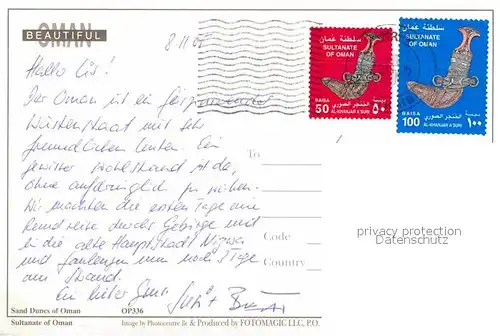 BEAUTIFUL
OMAN
8.11.05
Hallo
Der Oman ist ein
Wüstenstaat mit sehr
freundlichen Leuten. Ein
gewisser Wohlstand ist da,
ohne aufdringlich zu wirken.
Wir machten die ersten Tage eine
Rundreise durchs Gebirge und
in die alte Hauptstadt Nizwa
und faulenzen nun noch 3 Tage
am Strand.
Ein lieber Gruss
سلطنة عمان
SULTANATE
OF OMAN
BAISA
50
بيسة
٥٠
الخنجر الصوري
AL-KHANJAR A'SURI
سلطنة عمان
SULTANATE
OF OMAN
BAISA
100
بيسة
١٠٠
الخنجر الصوري
AL-KHANJAR A'SURI
To
Code
Country
privacy protection
Datenschutz
Sand Dunes of Oman OP336
Sultanate of Oman Image by Photocentre & Produced by FOTOMAGIC LLC, P.O.